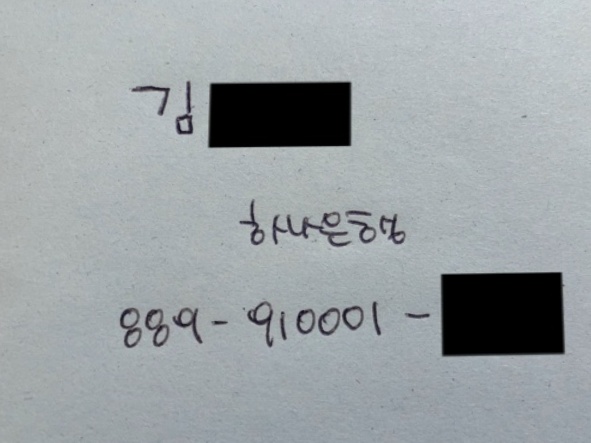 김
하나은행
889-910001-